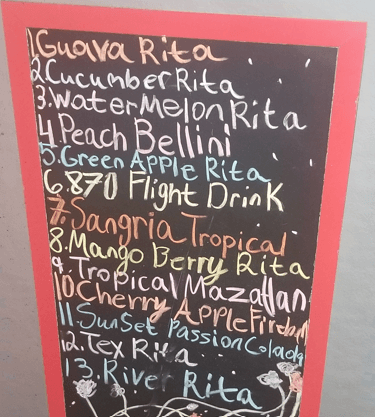 1.Guava Rita
2.Cucumber Rita
3.WaterMelon Rita
4 Peach Bellini
5.Green APPle Rita
6.870 Flight DrinK
7. Sangria Tropical
8.Mango Berry Rita
9.Tropical Mazatlan
10.Cherry APPle Fireball
11.Sunset Passion Colada
12.Tex Rita
13.River Rita